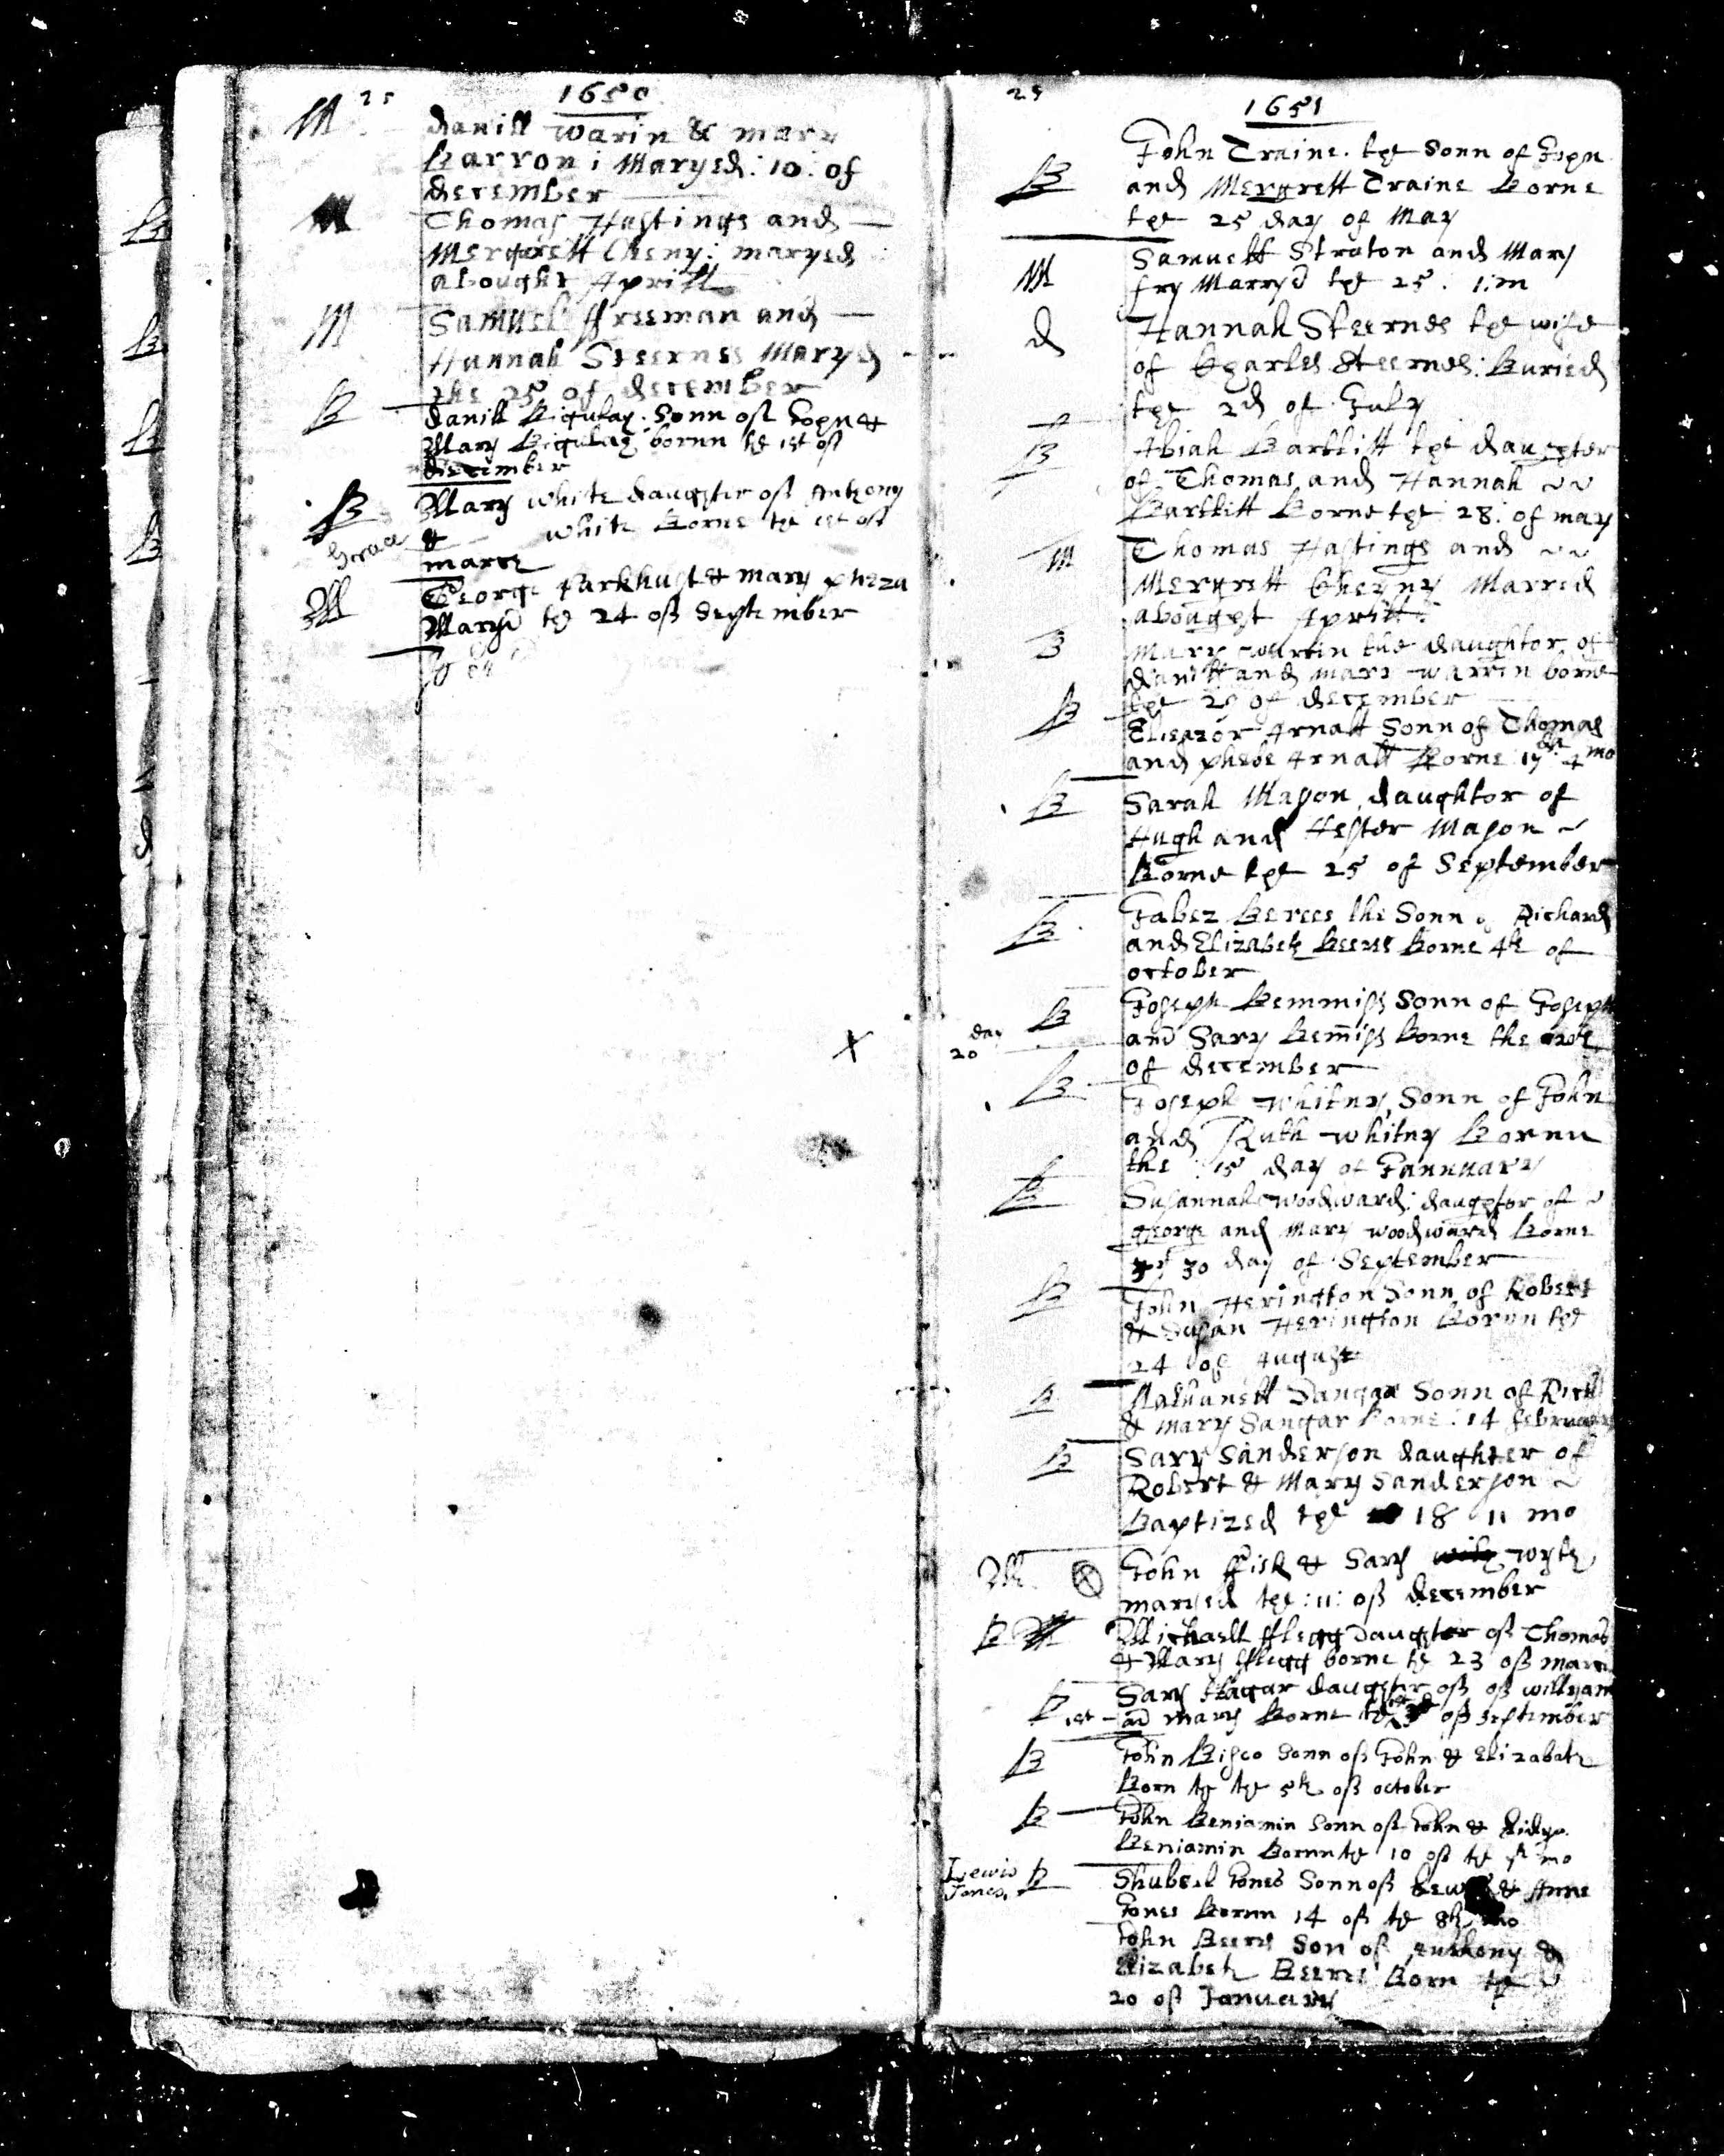 25 1650
M danill warin & mary
Barron : Maryed : 10 : of
december
M Thomas Hastings and
Mergrett Cheny : maryed
abought Aprill
M Samuel ffreeman and
Hannah Steernes Maryed
the 25 of december
B danill Bigulay Sonn off John &
Mary Bigulay bornn the 1st off
december
B Mary white daughter off Anthony
Grace & white Borne the 1st off
march
M George Parkhust & mary pheza
Maryd the 24 off September
25 1651
John Traine the Sonn of John
B and Mergrett Traine Borne
the 25 day of May
Samuell Straton and Mary
M fry Marryd the 25 . 1 : m
d Hannah Steernes the wife
of Charles Steernes : Buried
the 2d of July
B Abiah Bartlitt the daughter
of Thomas and Hannah
Bartlitt Borne the 28 : of may
M Thomas Hastings and
Mergrett Cheyny Marred
abought Aprill
B Mary warrin the daughtor of
daniell and mary warrin borne
the 29 of december
B Eliegzor Arnall Sonn of Thomas
and phebe Arnall Borne 17 4 mo
B Sarah Mason daughtor of
Hugh and Hester Mason
Borne the 25 of September
B Jabez Berees the Sonn of Richard
and Elizabeth Beeres Borne 4th of
october
B Joseph Bemmiss Sonn of Joseph
day 20 and Sary Bemiss Borne the
of december
B Joseph whitny Sonn of John
and Ruth whitny Bornn
the 15 day of Jannuary
B Susannah woodward : daughtor of
george and Mary woodward Borne
30 day of September
B John Herington Sonn of Robert
& Susan Herington Bornn the
24 of August
B Nathanell Sangar Sonn of Rich
& mary Sangar Borne : 14 february
B Sary Sanderson daughter of
Robert & Mary Sanderson
Baptized the 18 11 mo
M John Fisk & Sary wyth
maryed the : 11 : off december
B Michaell fflegg daughter off Thomas
& Mary fflegg borne the 23 off march
Sary Hagar daughter off off willyam
B 1st and mary Borne the off september
B John Bisco Sonn off John & Elizabeth
Born the the 5th off october
B John Beniamin Sonn off John &
Beniamin Bornn the 10 off the mo
Lewis B Shubeal Jones Sonn off & Anne
Jones. Jones Bornn 14 off the 8th mo
John Beers Son off Anthony &
Elizabeth Beeres Born the
20 off January